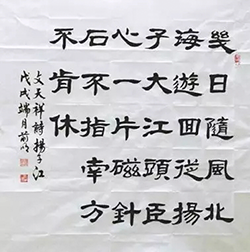 幾日隨風北
海遊回從揚
子大江頭臣
心一片磁針
石不指南方
不肯休
文天祥詩揚子江
戊戌端月